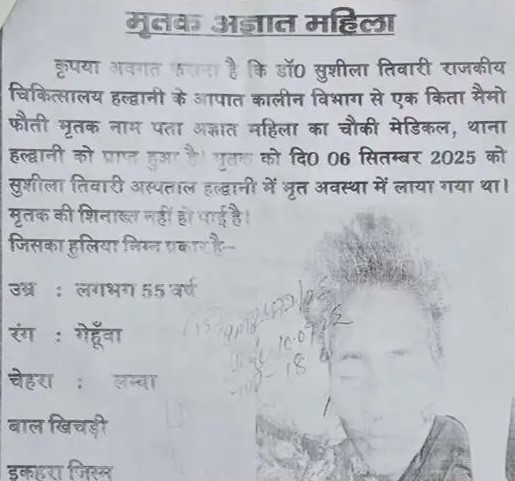 मृतक अज्ञात महिला
कृपया अवगत कराना है कि डॉ0 सुशीला तिवारी राजकीय
चिकित्सालय हल्द्वानी के आपात कालीन विभाग से एक किता मैमो
फौती मृतक नाम पता अज्ञात महिला का चौकी मेडिकल, थाना
हल्द्वानी को प्राप्त हुआ है। मृतक को दि0 06 सितम्बर 2025 को
सुशीला तिवारी अस्पताल हल्द्वानी में मृत अवस्था में लाया गया था।
मृतक की शिनाख्त नहीं हो पाई है।
जिसका हुलिया निम्न प्रकार है--
उम्र : लगभग 55 वर्ष
रंग : गेहूँवा
चेहरा : लम्बा
बाल खिचड़ी
इकहरा जिस्म